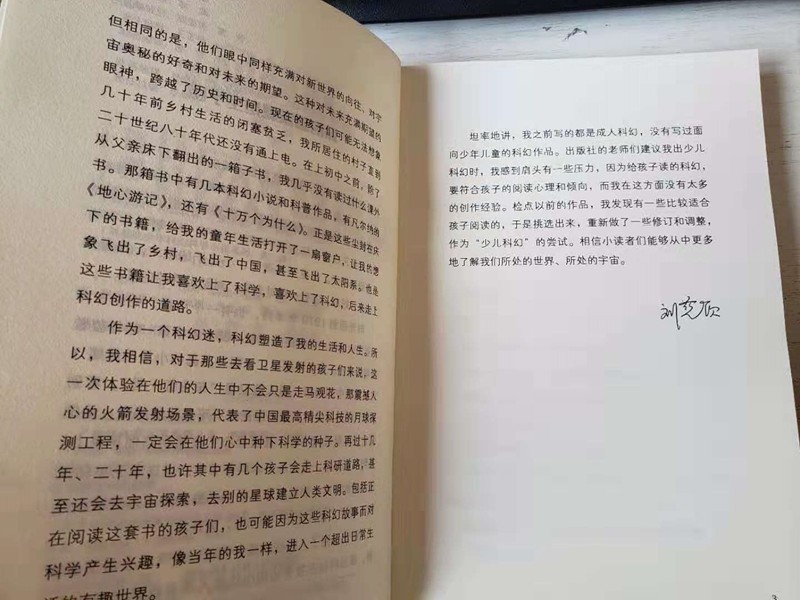 但相同的是，他们眼中同样充满对新世界的向往，对宇
宙奥秘的好奇和对未来的期望。这种对未来充满期望的
眼神，跨越了历史和时间。现在的孩子们可能无法想象
几十年前乡村生活的闭塞贫乏，我所居住的村子直到
二十世纪八十年代还没有通上电。在上初中之前，除了
从父亲床下翻出的一箱子书，我几乎没有读过什么课外
书。那箱书中有几本科幻小说和科普作品，有凡尔纳的
《地心游记》，还有《十万个为什么》。正是这些尘封在床
下的书籍，给我的童年生活打开了一扇窗户，让我的想
象飞出了乡村，飞出了中国，甚至飞出了太阳系。也是
这些书籍让我喜欢上了科学，喜欢上了科幻，后来走上
科幻创作的道路。
作为一个科幻迷，科幻塑造了我的生活和人生。所
以，我相信，对于那些去看卫星发射的孩子们来说，这
一次体验在他们的人生中不会只是走马观花，那震撼人
心的火箭发射场景，代表了中国最高精尖科技的月球探
测工程，一定会在他们心中种下科学的种子。再过十几
年、二十年，也许其中有几个孩子会走上科研道路，甚
至还会去宇宙探索，去别的星球建立人类文明。包括正
在阅读这套书的孩子们，也可能因为这些科幻故事而对
科学产生兴趣，像当年的我一样，进入一个超出日常生
活的有趣世界。
坦率地讲，我之前写的都是成人科幻，没有写过面
向少年儿童的科幻作品。出版社的老师们建议我出少儿
科幻时，我感到肩头有一些压力，因为给孩子读的科幻，
要符合孩子的阅读心理和倾向，而我在这方面没有太多
的创作经验。检点以前的作品，我发现有一些比较适合
孩子阅读的，于是挑选出来，重新做了一些修订和调整，
作为“少儿科幻”的尝试。相信小读者们能够从中更多
地了解我们所处的世界、所处的宇宙。
刘慈欣
3